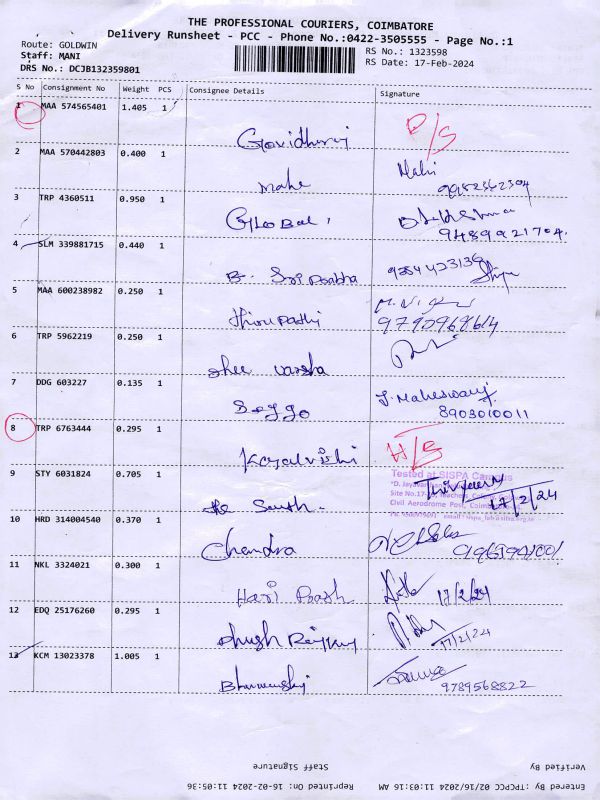 THE PROFESSIONAL COURIERS, COIMBATORE
Delivery Runsheet - PCC - Phone No.:0422-3505555 - Page No.:1
Route: GOLDWIN
Staff: MANI
DRS No.: DCJB132359801
RS No.: 1323598
RS Date: 17-Feb-2024
S No Consignment No Weight PCS Consignee Details Signature
1 MAA 574565401 1.405 1 D/S
2 MAA 570442803 0.400 1 Mahe Mahi
3 TRP 4360511 0.950 1 GLOBAL 9489921704.
4 SLM 339881715 0.440 1 B. Sri Prabha
5 MAA 600238982 0.250 1 Thirupathi
6 TRP 5962219 0.250 1 Shee varsha
7 DDG 603227 0.135 1 J. Maheswari
8903010011
8 TRP 6763444 0.295 1 Kayalvishi
9 STY 6031824 0.705 1 17/2/24
Tested at SISPA Campus
Civil Aerodrome Post,
10 HRD 314004540 0.370 1 Chendra
11 NKL 3324021 0.300 1 Hari 17/2/24
12 EDQ 25176260 0.295 1 17/2/24
13 KCM 13023378 1.005 1 9789568822
Staff Signature
Verified By
Reprinted On: 16-02-2024 11:05:36
Entered By :TPCPCC 02/16/2024 11:03:16 AM